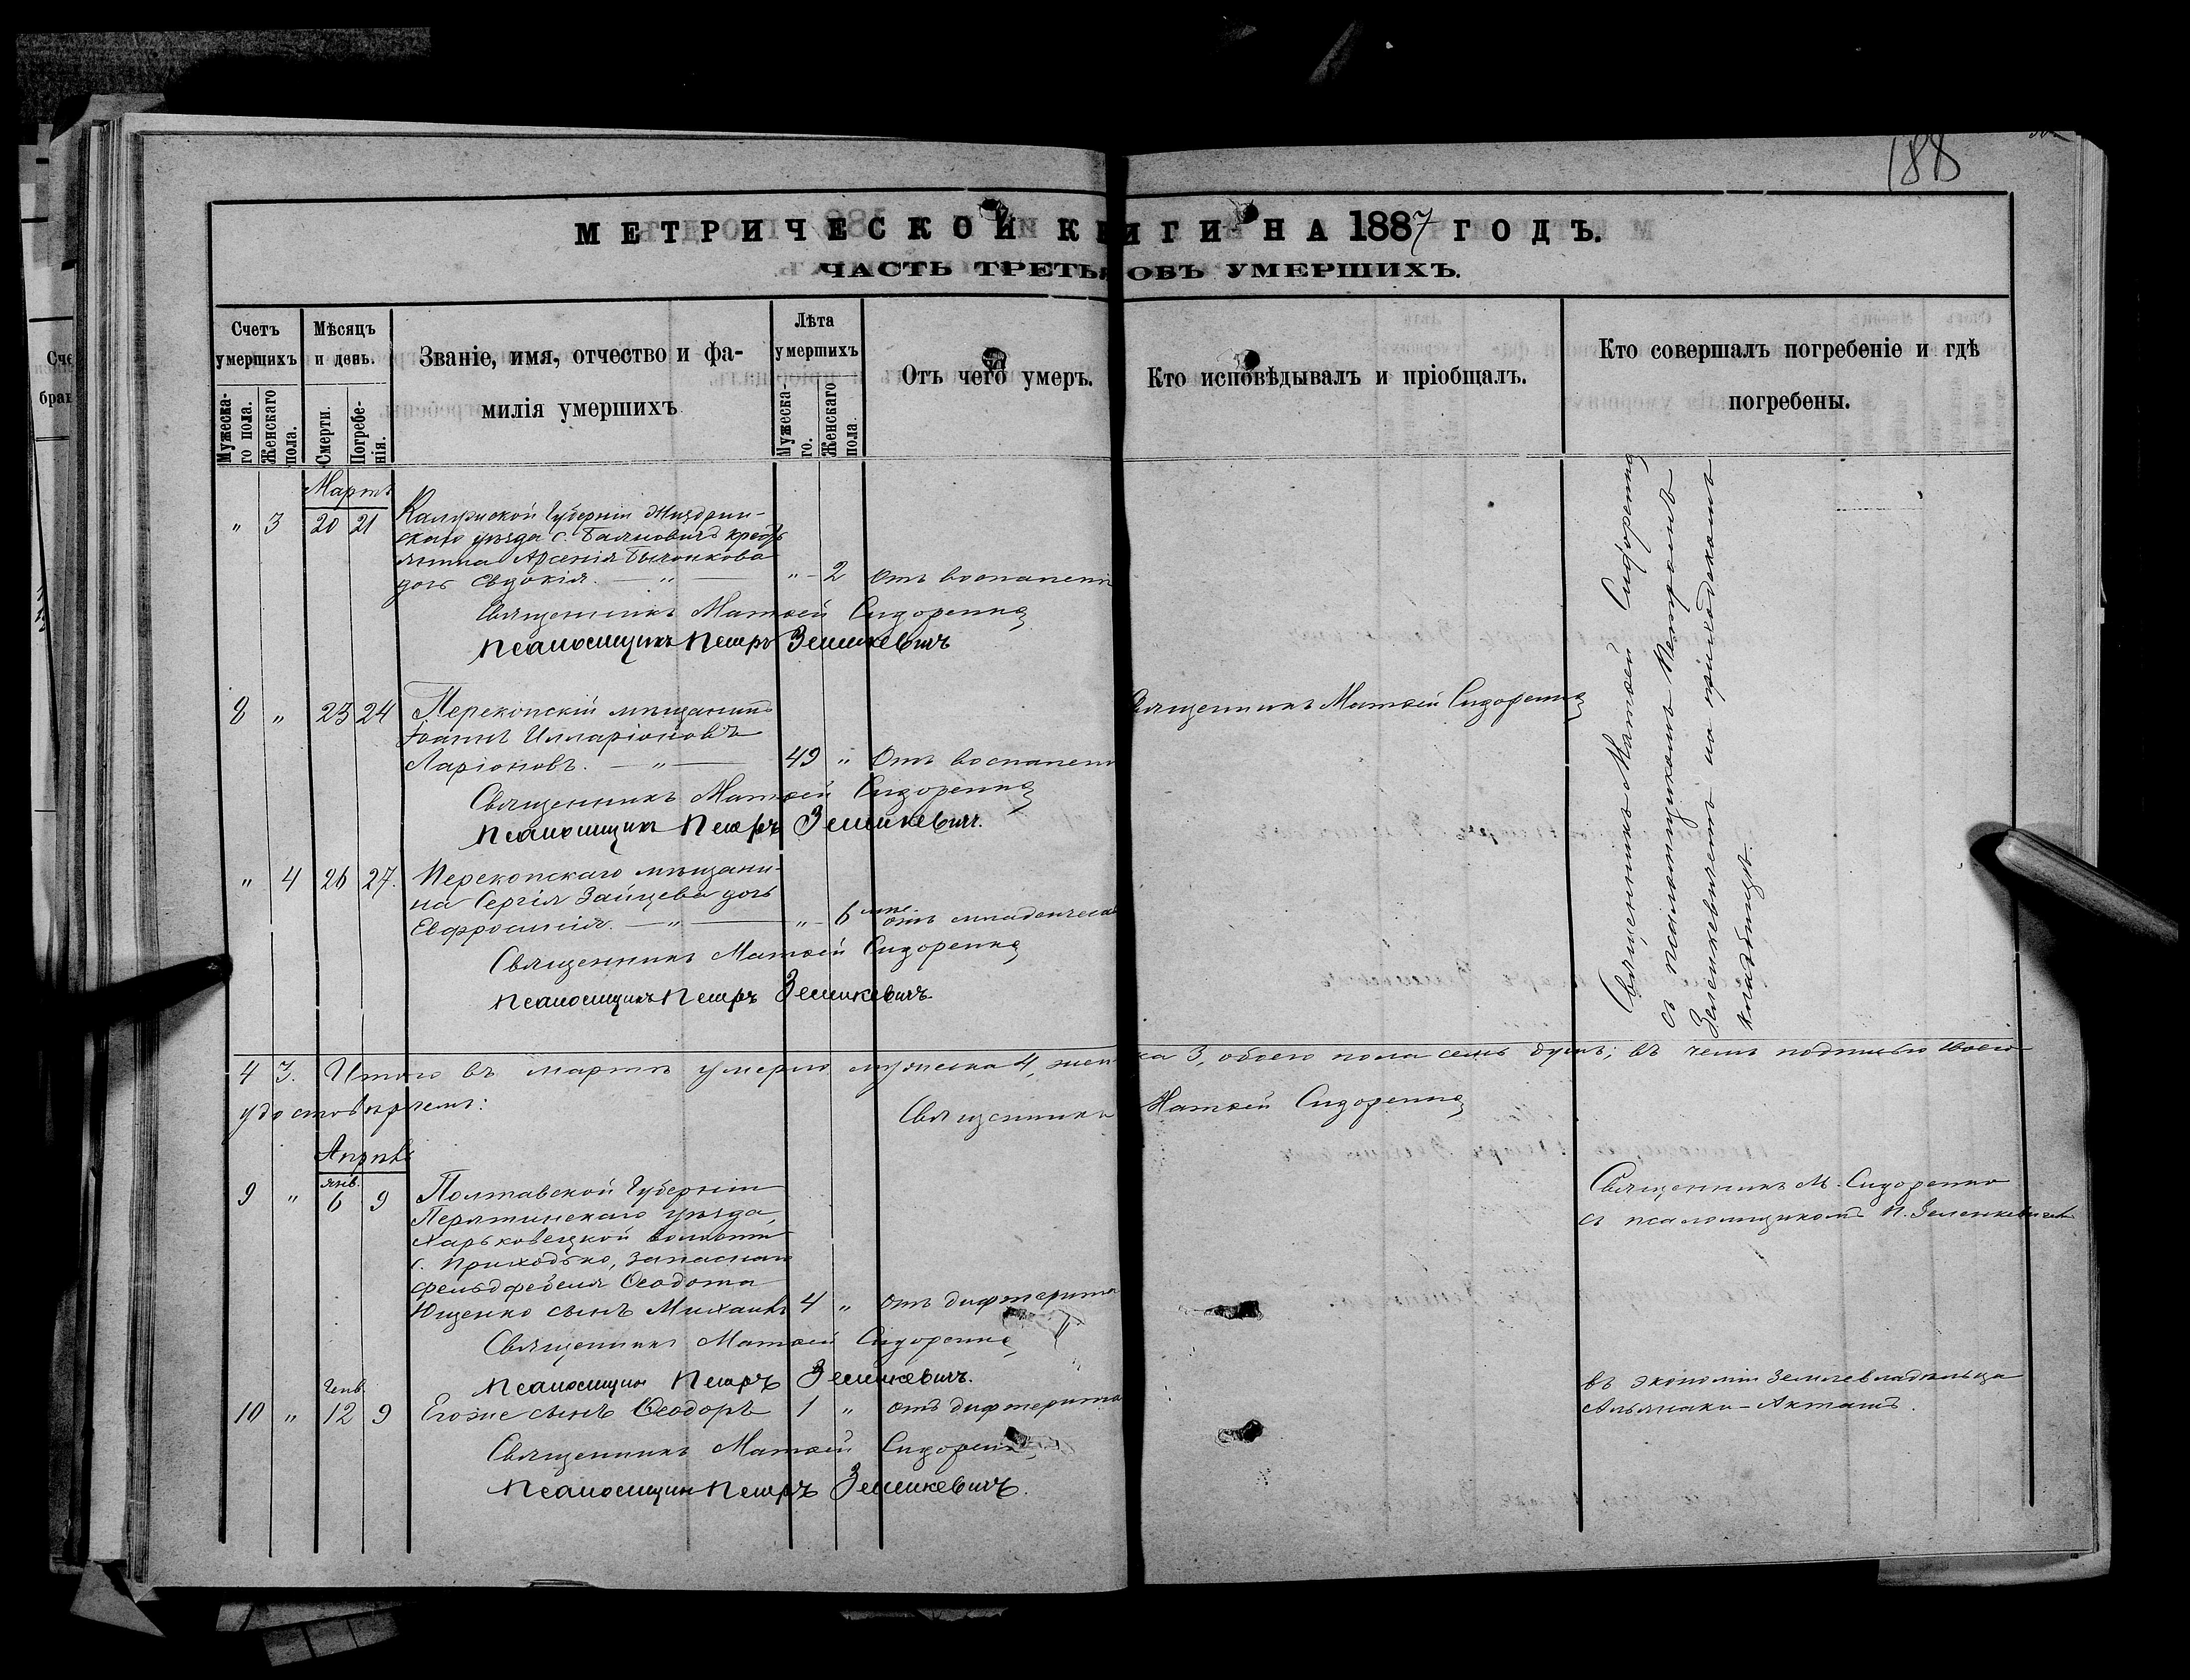 188
МЕТРИЧЕСКОЙ КНИГИ НА 1887 ГОДЪ.
ЧАСТЬ ТРЕТЬЯ ОБЪ УМЕРШИХЪ.
Счетъ умершихъ
Мужеска-го пола.
Женскаго пола.
Мѣсяцъ и день.
Смерти.
Погребе-нія.
Званіе, имя, отчество и фа-
милія умершихъ
Лѣта умершихъ
Мужеска-го.
Женскаго пола.
Отъ чего умеръ.
Кто исповѣдывалъ и пріобщалъ.
Кто совершалъ погребеніе и гдѣ
погребены.
Мартъ
" 3 20 21 Калужской Губерніи Жиздрин-
скаго уѣзда с. кресть
янина Арсенія
дочь Евдокія. — " — " - 2 Отъ воспаленія
Священникъ Матѳей Сидоренко
Псаломщикъ Петръ Зеленкевичъ
8 " 23 24 Перекопскій мѣщанинъ
Іоаннъ Илларіоновъ
Ларіоновъ. — " — 49 " Отъ воспален
Священникъ Матѳей Сидоренко
Священникъ Матѳей Сидоренко
Псаломщикъ Петръ Зеленкевичъ.
" 4 26 27. Перекопскаго мѣщани-
на Сергія Зайцева дочь
Евфросинія. — " — " - 6 мѣс. отъ младенческа
Священникъ Матѳей Сидоренко
Псаломщикъ Петръ Зеленкевичъ.
Священникъ Матѳей Сидоренко
съ псаломщикомъ Петромъ
Зеленкевичемъ на приходскомъ
кладбищѣ.
4 3. Итого въ мартѣ умерло мужеска 4, женска 3, обоего пола семь душъ; въ чемъ подписью своею
удостовѣряемъ:
Священникъ Матѳей Сидоренко
Апрѣль
янв.
9 " 6 9 Полтавской Губерніи
Пирятинскаго уѣзда,
Харьковецкой волости
с. Приходько, запаснаго
фельдфебеля Ѳеодота
Ющенко сынъ Михаилъ 4 " отъ дифтерита
Священникъ М. Сидоренко
съ псаломщикомъ П. Зеленкевичемъ
Священникъ Матѳей Сидоренко
Псаломщик Петръ Зеленкевичъ.
Генв.
10 " 12 9 Егоже сынъ Ѳеодоръ 1 " отъ дифтерита
въ экономіи Землевладѣльца
Акташъ.
Священникъ Матѳей Сидоренко
Псаломщик Петръ Зеленкевичъ.